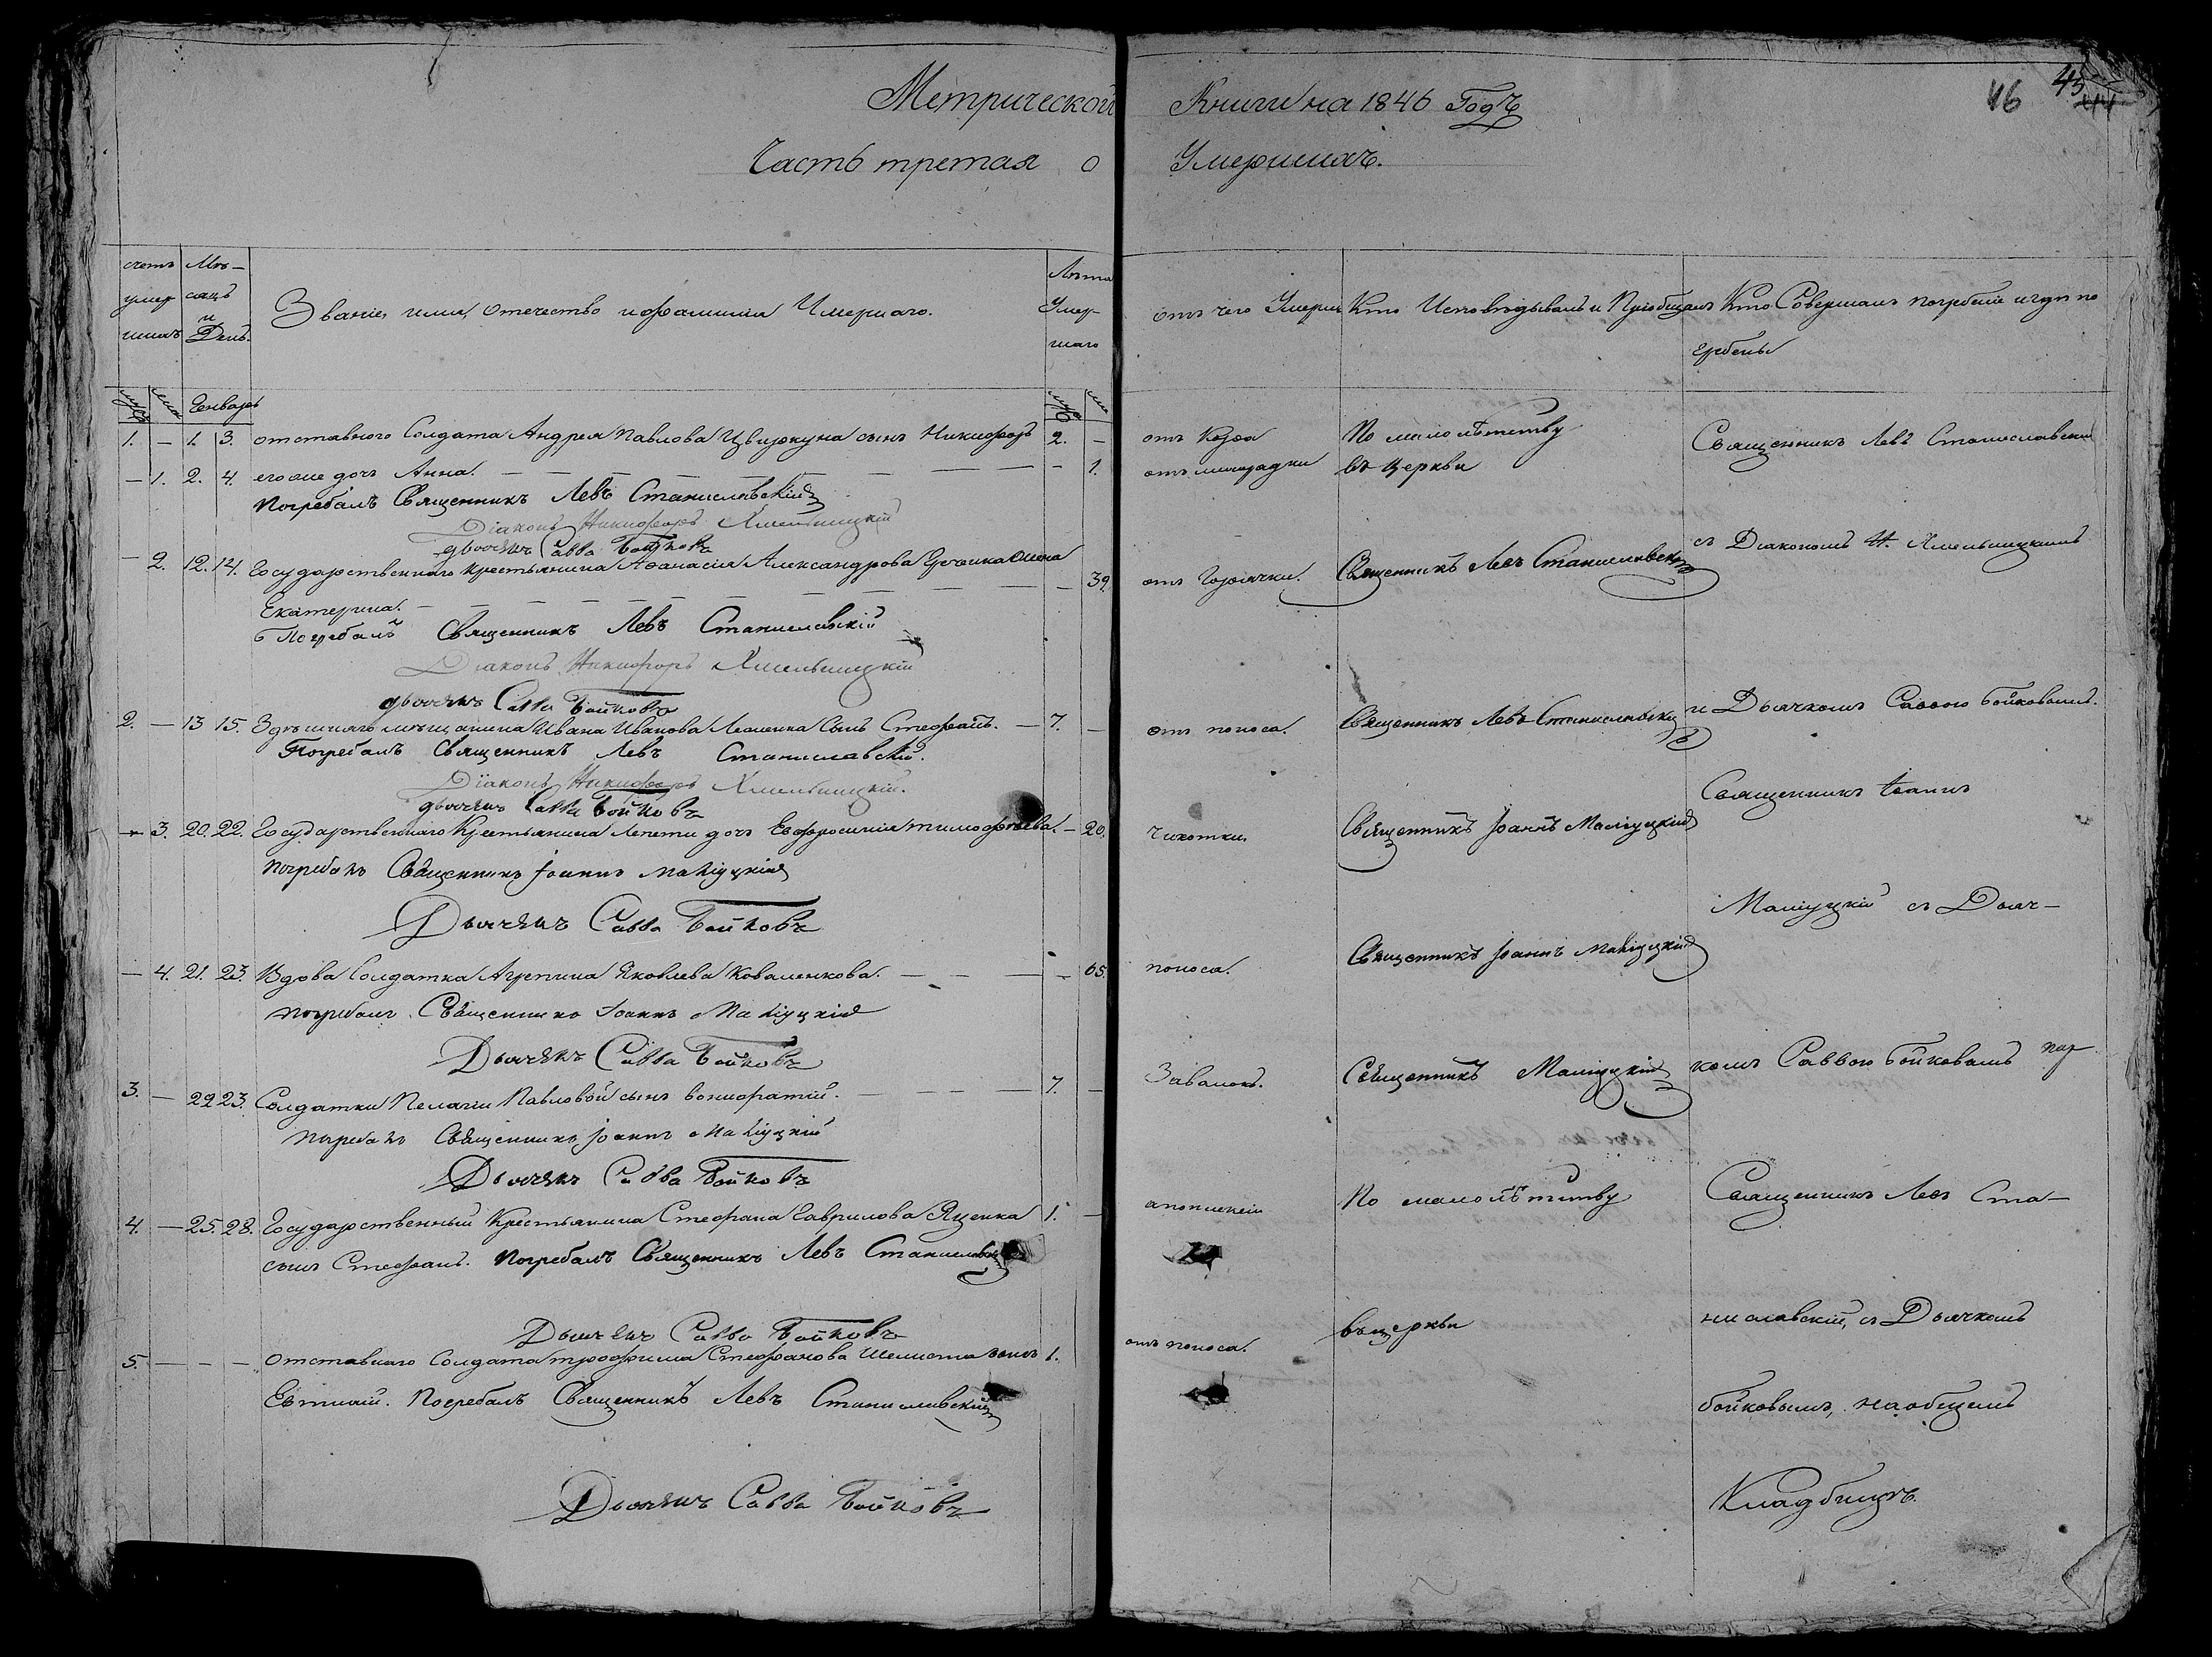 Метрической Книги на 1846 Годъ
46 45 44
Часть третая о Умершихъ.
счетъ умершихъ
Мѣсяцъ и День.
Званіе, имя, отечество и фамилія Умершаго.
Лѣта Умершаго
отъ чего Умеръ
Кто Исповѣдывалъ и Пріобщалъ
Кто Совершалъ погребеніе и гдѣ погребены
Генварь
1. — 1. 3. отставного Солдата Андрея Павлова Цвиркуна сынъ Никифоръ 2. — отъ Кора По малолѣтству Священникъ Левъ Станиславскій
— 1. 2. 4. его же дочь Анна. — 1. отъ лихорадки въ Церкви
Погребалъ Священникъ Левъ Станиславскій
Діаконъ Никифоръ Хмельницкій
дьячекъ Савва Бойковъ
— 2. 12. 14. Государственнаго крестьянина Афанасія Александрова жена — 39. отъ Горячки. Священникъ Левъ Станиславскій съ Діакономъ Н. Хмельницкимъ
Екатерина.
Погребалъ Священникъ Левъ Станиславскій
Діаконъ Никифоръ Хмельницкій
дьячекъ Савва Бойковъ
2. — 13 15. Здѣшняго мѣщанина Ивана Иванова сынъ Стефанъ. — 7. — отъ поноса. Священникъ Левъ Станиславскій и Дьячкомъ Саввою Бойковымъ.
Погребалъ Священникъ Левъ Станиславскій.
Діаконъ Никифоръ Хмельницкій.
дьячекъ Савва Бойковъ
Священникъ Іоаннъ
— 3. 20. 22. Государственнаго Крестьянина дочь Евфросинія Тимофѣева. — 20. Чихотки. Священникъ Іоаннъ Маліуцкій
погребалъ Священникъ Іоаннъ Маліуцкій
Маліуцкій съ Дьяч-
Дьячекъ Савва Бойковъ
— 4. 21. 23. Вдова Солдатка Агрепина Яковлева Коваленкова. — 65. поноса. Священникъ Іоаннъ Маліуцкій
погребалъ Священникъ Іоаннъ Маліуцкій
Дьячекъ Савва Бойковъ
3. — 22 23. Солдатки Пелагіи Павловой сынъ Вонифатій. 7. — Завалокъ. Священникъ Маліуцкій комъ Саввою Бойковымъ
погребалъ Священникъ Іоаннъ Маліуцкій
Дьячекъ Савва Бойковъ
4. — 25. 28. Государственный Крестьянина Стефана Гаврилова Яценка 1. — апоплексіи По малолѣтству Священникъ Левъ Ста-
сынъ Стефанъ. погребалъ Священникъ Левъ Станиславскій
Дьячекъ Савва Бойковъ
въ церкви ниславскій, съ Дьячкомъ
5. — — — Отставнаго Солдата Трофима Стефанова сынъ 1. отъ поноса.
Евтихій. Погребалъ Священникъ Левъ Станиславскій
Бойковымъ, на общемъ
Дьячекъ Савва Бойковъ
Кладбищѣ.